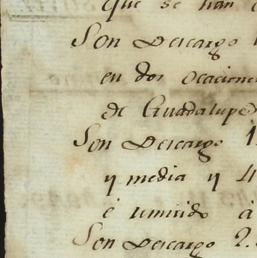 que se han
Son Descargo
en dos ocacione
de Guadalupe
Son Descargo 1
y media y 4
é remitido à
Son Descargo 2.